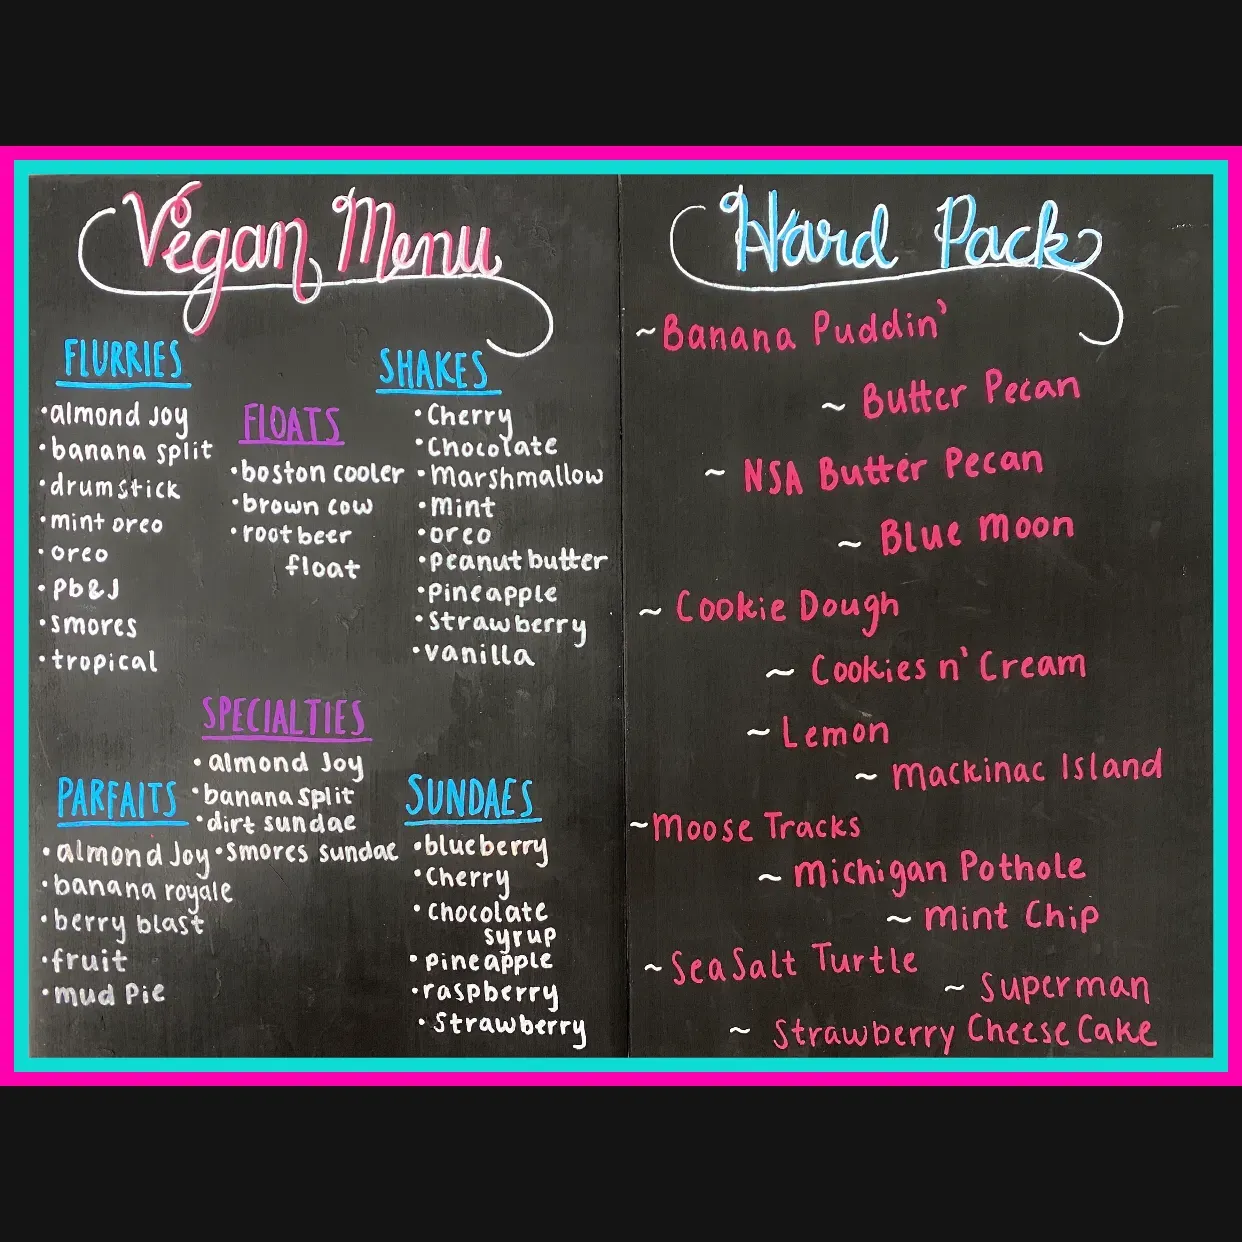 Vegan Menu
FLURRIES
•almond Joy
•banana split
•drumstick
•mint oreo
•oreo
•Pb&J
•smores
•tropical
FLOATS
•boston cooler
•brown cow
•root beer
float
SHAKES
•Cherry
•Chocolate
•Marshmallow
•Mint
•oreo
•Peanut butter
•Pineapple
•Strawberry
•vanilla
SPECIALTIES
•almond Joy
•banana split
•dirt sundae
•smores sundae
PARFAITS
•almond Joy
•banana royale
•berry blast
•fruit
•mud Pie
SUNDAES
•blueberry
•Cherry
•Chocolate
syrup
•Pineapple
•raspberry
•Strawberry
Hard Pack
~Banana Puddin'
~ Butter Pecan
~ NSA Butter Pecan
~ Blue Moon
~ Cookie Dough
~ Cookies n' Cream
~ Lemon
~ Mackinac Island
~Moose Tracks
~ Michigan Pothole
~ Mint Chip
~ Sea Salt Turtle
~ Superman
~ Strawberry Cheese Cake